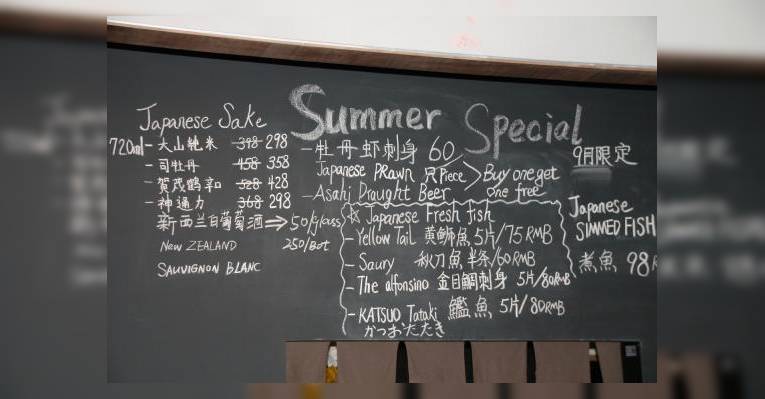 Summer Special
Japanese Sake
720ml - 大山純米 398 298
- 司牡丹 458 358
- 賀茂鶴辛和 528 428
- 神通力 368 298
新西兰白葡萄酒 ⇒ 50/glass
New ZEALAND 250/Bot
SAUVIGNON BLANC
- 牡丹虾刺身 60
Japanese PRawn 只Piece
- Asahi Draught Beer
Buy one get
one free
☆ Japanese Fresh fish
- Yellow Tail 黄鰤魚 5片/75RMB
- Saury 秋刀魚 半条/60RMB
- The alfonsino 金目鯛刺身 5片/80RMB
- KATSUO Tataki 鑑魚 5片/80RMB
かつおたたき
9月限定
Japanese
SIMMED FISH
煮魚 98R